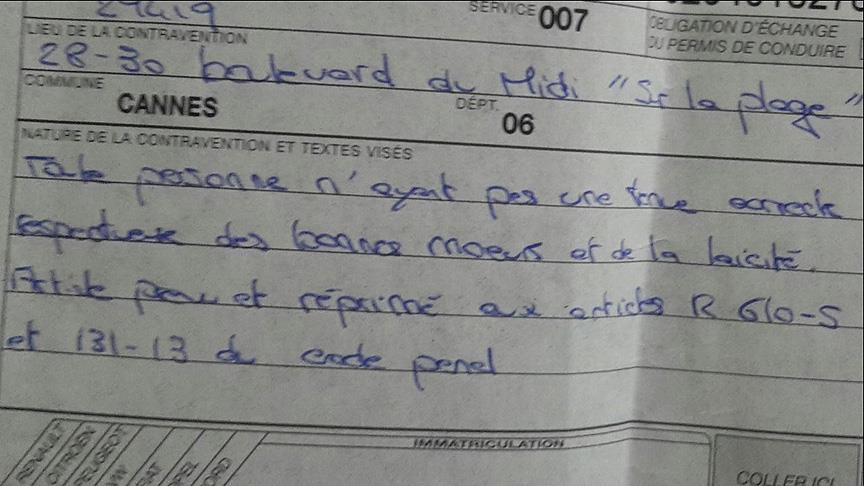 SERVICE 007
OBLIGATION D'ÉCHANGE
DU PERMIS DE CONDUIRE
LIEU DE LA CONTRAVENTION
28-30 boulevard du Midi "Sur la plage"
COMMUNE CANNES DÉPT. 06
NATURE DE LA CONTRAVENTION ET TEXTES VISÉS
Toute personne n'ayant pas une tenue correcte
respectueuse des bonnes moeurs et de la laïcité.
Article prévu et réprimé aux articles R 610-5
et 131-13 du code penal
IMMATRICULATION
RENAULT
CITROEN
PEUGEOT
COLLER ICI